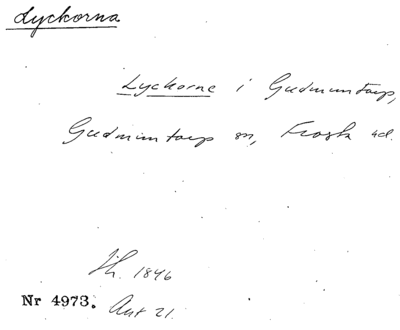 Lyckorna
Lyckorne i Gudmuntorp,
Gudmuntorp sn, Frosta hd.
Jh. 1846
Nr 4973. Ant 21.